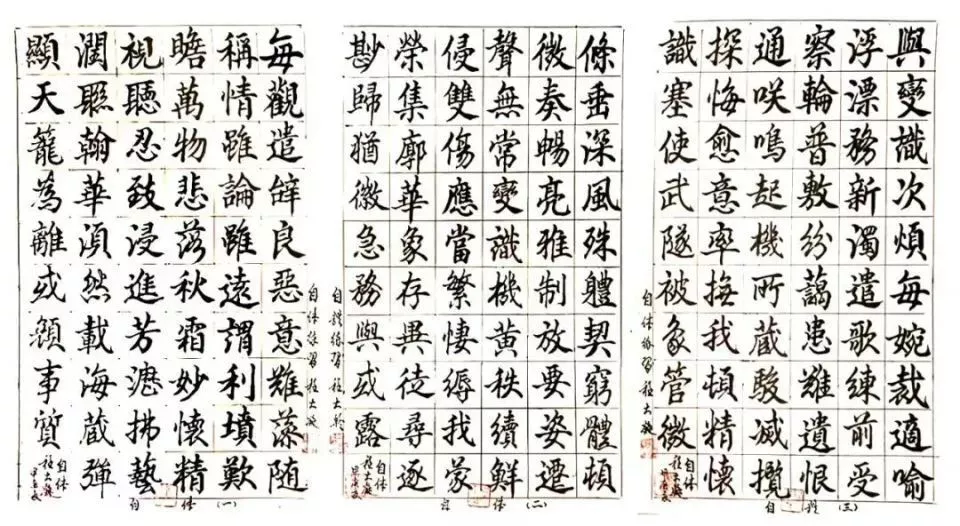 每觀遣辞良惡意難藻随
稱情雖論雖遠謂利墳歎
瞻萬物悲落秋霜妙懷精
視聽忍致浸進芳瀝拂藝
潤翰華須然載海蔵彈
顯天籠為離或頷事質
自体
自体練習
自体(一)
條垂深風殊體契窮體頓
微奏暢亮雅制放要姿遷
聲無常變識機黃秩續鮮
侵雙傷應當繁悽縟我蒙
榮集廓華象存異徒尋逐
尠歸猶徽急務與或露
自体
自體練習
自体(二)
與變識次煩每婉裁適喻
浮漂務新濁遣歌練前受
察輪普敷紛藹患難遺恨
通咲鳴起機所蔵駿減攬
探悔愈意率撫我頓精懷
識塞使武隧被象管微
自体
自体練習
自體(三)